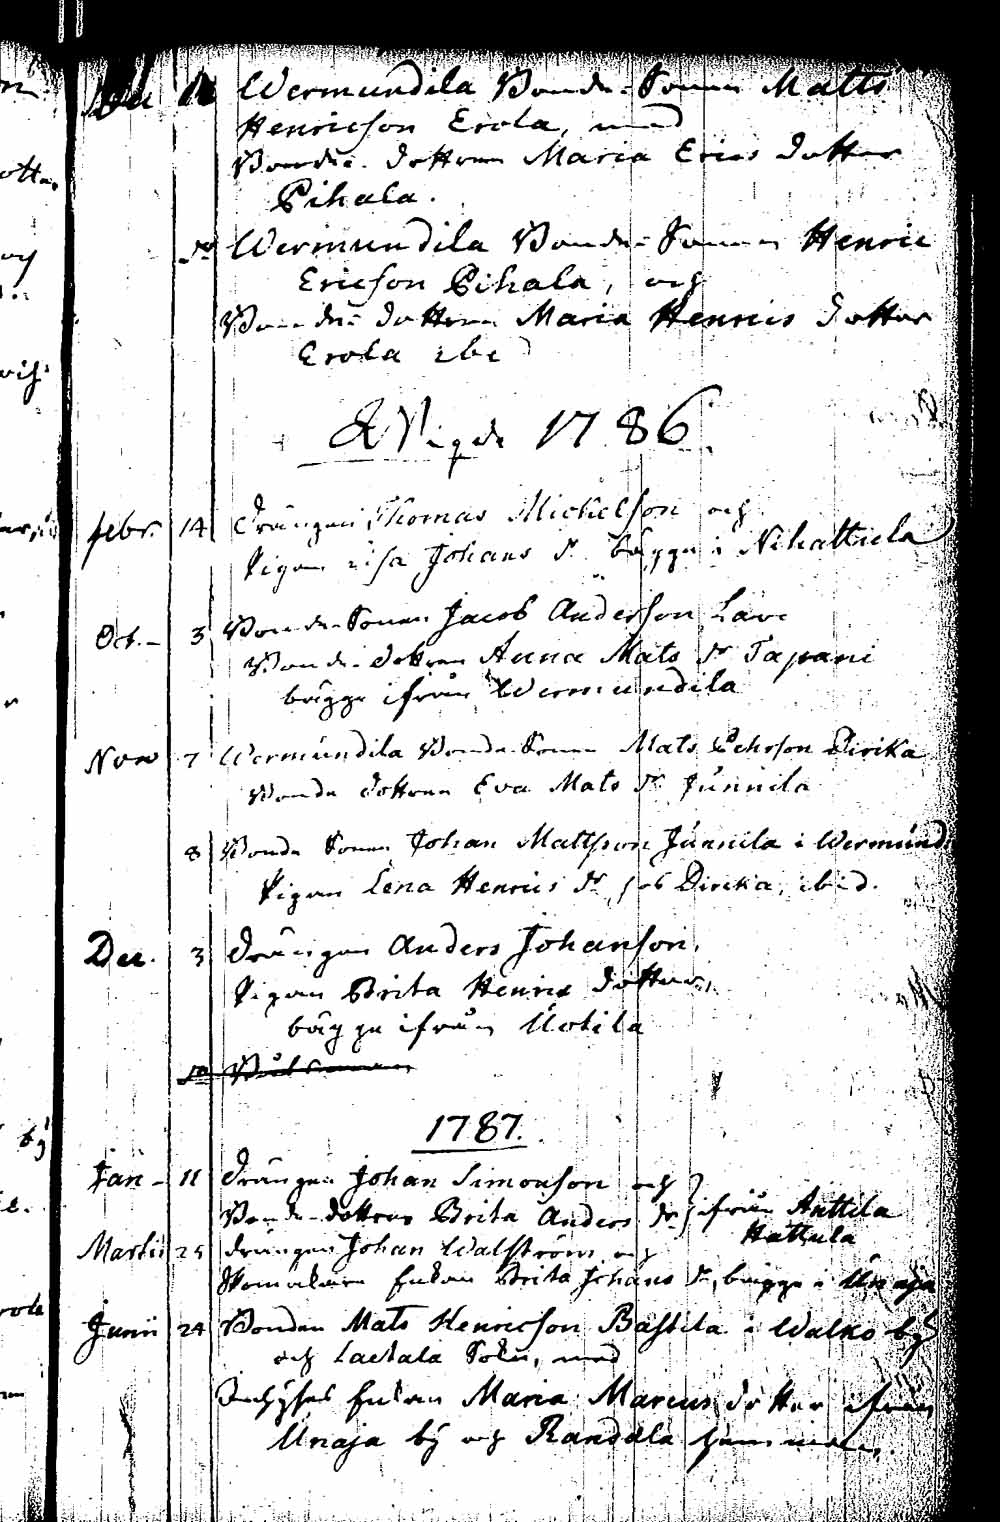 Wermundila Bonde-Sonen Matts
Henricson Erola, med
Bonde-dottren Maria Erics dotter
Pihala.
Wermundila Bonde-Sonen Henric
Ericson Pihala, och
Bonde-dottren Maria Henrics dotter
Erola ibid
Vigde 1786.
Febr. 14 Drängen Thomas Michelson och
Pigan Johans dr bägge i Nihattula
Oct. 3 Bonde-Sonen Jacob Anderson
Bonde-dottren Anna Mats dr Tapani
bägge ifrån Wermundila
Nov 7 Wermundila Bonde Sonen Mats Pehrson Dirika
Bonde dottren Eva Mats dr Junnila
8 Bonde Sonen Johan Mattsson Junnila i Wermund:
Pigan Lena Henrics dr Dirika, ibid.
Dec. 3 Drängen Anders Johanson,
Pigan Brita Henrics dotter,
bägge ifrån Uotila
1787.
Jan - 11 Drängen Johan Simonson och
Bonde-dottren Brita Anders dr ifrån Anttila
Hattula
Martii 25 Drängen Johan Walström och
Enkan Brita Johans dr, bägge i Unaja
Junii 24 Bonden Mats Henricson Bastila i Walko by
och Lactala Sokn, med
Enkan Maria Marcus dotter ifrån
Unaja by och Randala hemman.